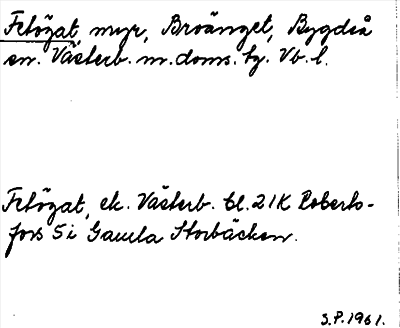 Fetögat, myr, Broänget, Bygdeå
sn. Västerb. m. doms. tg. Vb. l.
Fetögat, ek. Västerb. bl. 21K Roberts-
fors 5i Gamla Storbäcken.
S.P. 1961.